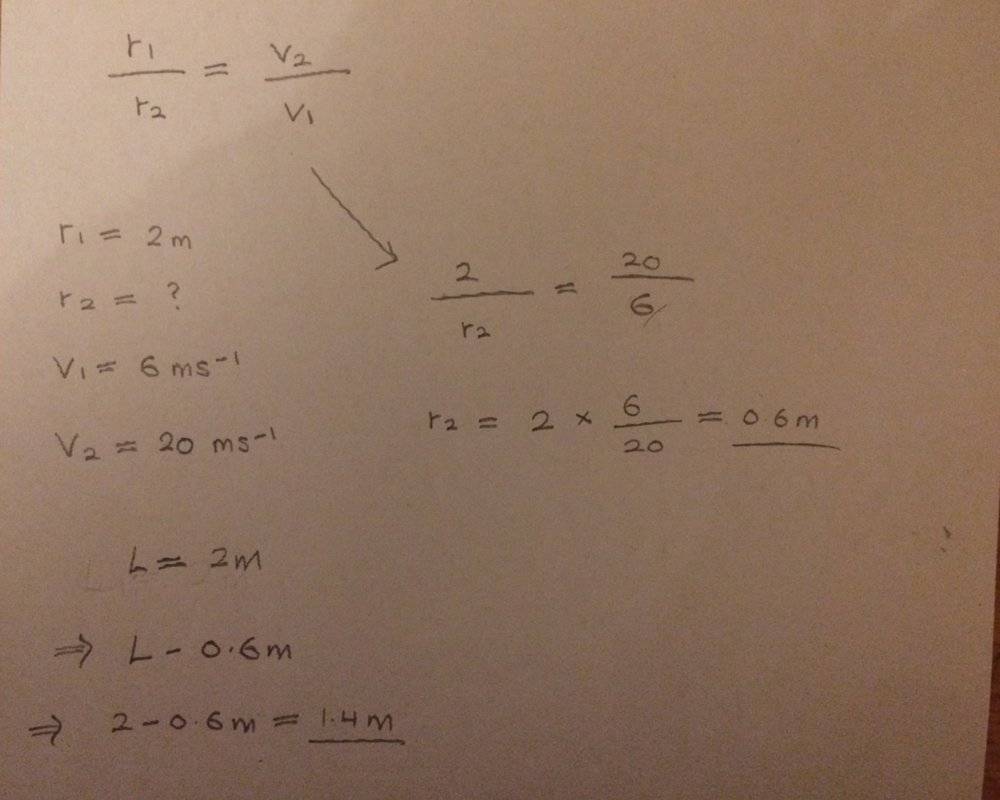 r₁/r₂ = V₂/V₁
r₁ = 2m
r₂ = ?
V₁ = 6 ms⁻¹
V₂ = 20 ms⁻¹
2/r₂ = 20/6
r₂ = 2 × 6/20 = 0.6m
L = 2m
⇒ L - 0.6m
⇒ 2 - 0.6m = 1.4m